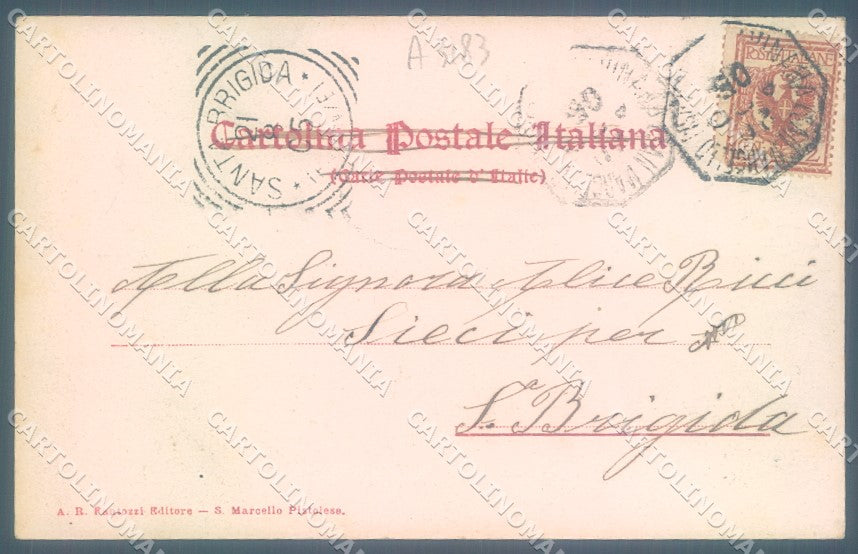 A 483
SANTA BRIGIDA
POSTE ITALIANE
Cartolina Postale Italiana
(Carte Postale d'Italie)
Alla Signora Alice Ricci
Sieci per
S.ᵃ Brigida
A. R. Rantozzi Editore — S. Marcello Pistoiese.
CARTOLINOMANIA